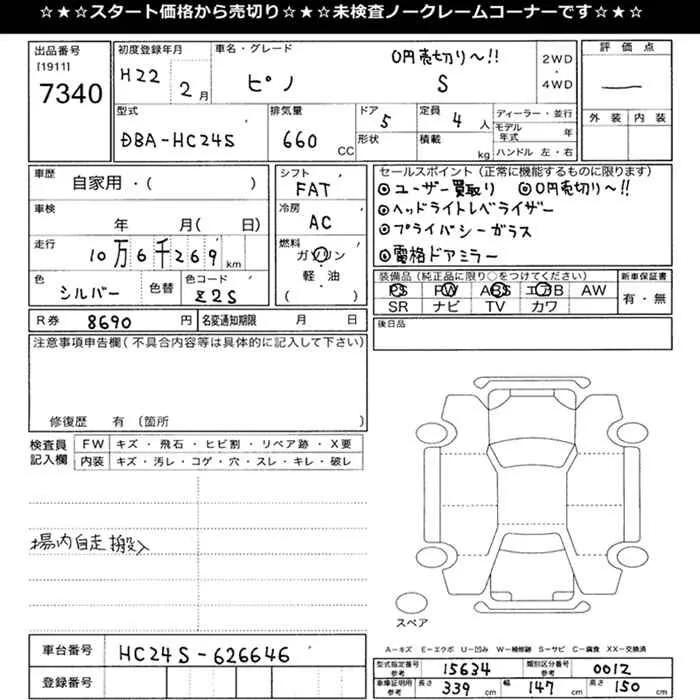 ☆★☆スタート価格から売切り☆★☆未検査ノークレームコーナーです☆★☆
出品番号
[1911]
7340
初度登録年月
H22 2月
車名・グレード
ピノ S
0円売切り〜!!
2WD
・
4WD
評価点
—
外装 内装
型式
DBA-HC24S
排気量
660 CC
ドア 5
形状
定員 4人
積載 kg
ディーラー・並行
モデル年式 年
ハンドル 左・右
車歴 自家用・( )
車検 年 月( 日)
走行 10万6千269km
色 シルバー 色替
色コード Z2S
シフト
FAT
冷房
AC
燃料
ガソリン
軽・油
( )
セールスポイント(正常に機能するものに限ります)
◎ユーザー買取り ◎0円売切り〜!!
◎ヘッドライトレベライザー
◎プライバシーガラス
◎電格ドアミラー
装備品(純正品に限り○をつけてください) 新車保証書
PS PW ABS エアB AW 有・無
SR ナビ TV カワ
R券 8690円 名変通知期限 月 日
後日品
注意事項申告欄(不具合内容等は具体的に記入して下さい)
修復歴 有(箇所 )
検査員記入欄
FW キズ・飛石・ヒビ割・リペア跡・X要
内装 キズ・汚レ・コゲ・穴・スレ・キレ・破レ
場内自走搬入
スペア
A−キズ E−エクボ U−凹み W−補修跡 S−サビ C−腐食 XX−交換済
車台番号 HC24S-626646
登録番号
型式指定番号参考 15634 類別区分番号参考 0012
車庫証明用参考 長さ 339cm 幅 147cm 高さ 150cm